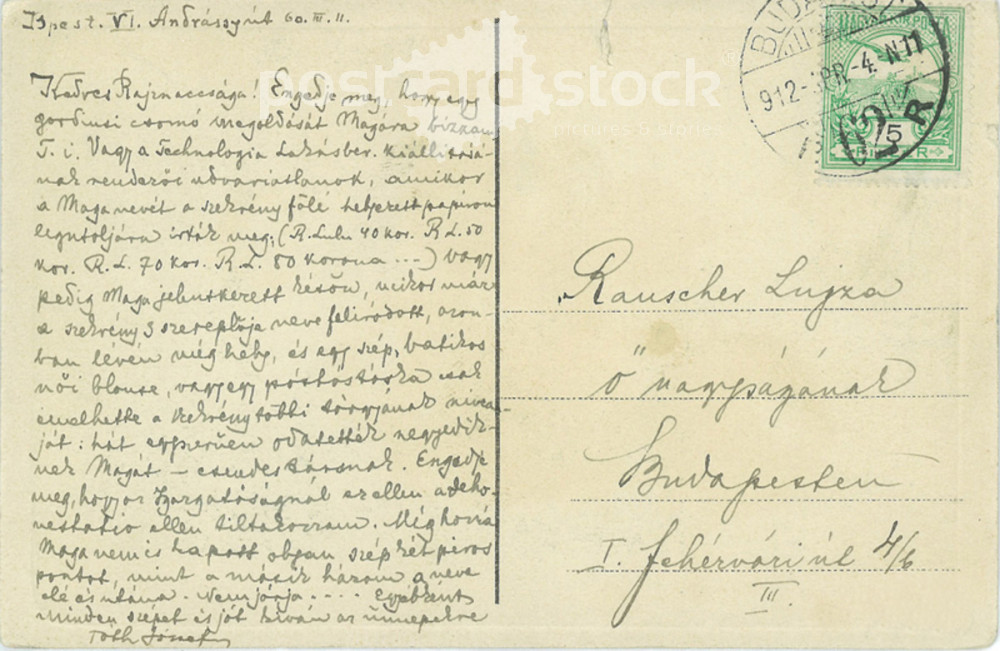 Bpest. VI. Andrássy út 60. III. 11.
Kedves Rajznaccsága! Engedje meg, hogy egy
gordiusi csomó megoldását Magára bízzam
T. i. Vagy a Technologia Lakásber. kiállításá-
nak rendezői udvariatlanok, amikor
a Maga nevét a szekrény fölé helyezett papiron
legutoljára irták meg, (R. Lulu 40 kor. R L. 50
kor. R. L. 70 kor. R. L. 80 korona ...) vagy
pedig Maga jelentkezett későn, mikor már
a szekrény 3 szereplője neve felíródott, azon-
ban lévén még hely, és egy szép, batikos
női blouse, vagy egy póstástáska csak
emelhette a szekrény többi tárgyának nivau-
ját: hát egyszerűen odatették negyedik-
nek Magát – csendestársnak. Engedje
meg, hogy az Igazgatóságnál ez ellen a deho-
nestatio ellen tiltakozzam. Még hozzá
Maga nem is kapott olyan szép két piros
pontot, mint a másik három a neve
elé és utána. Nem járja .... Egyébként
minden szépet és jót kíván az ünnepekre
Tóth József
postcard stock
picture to stories
BUDAPEST
912 - APR - 4. N11
MAGYAR KIR. POSTA
5
FILLÉR
Rauscher Lujza
Ő nagyságának
Budapesten
I. Fehérvári út 4/6
III.